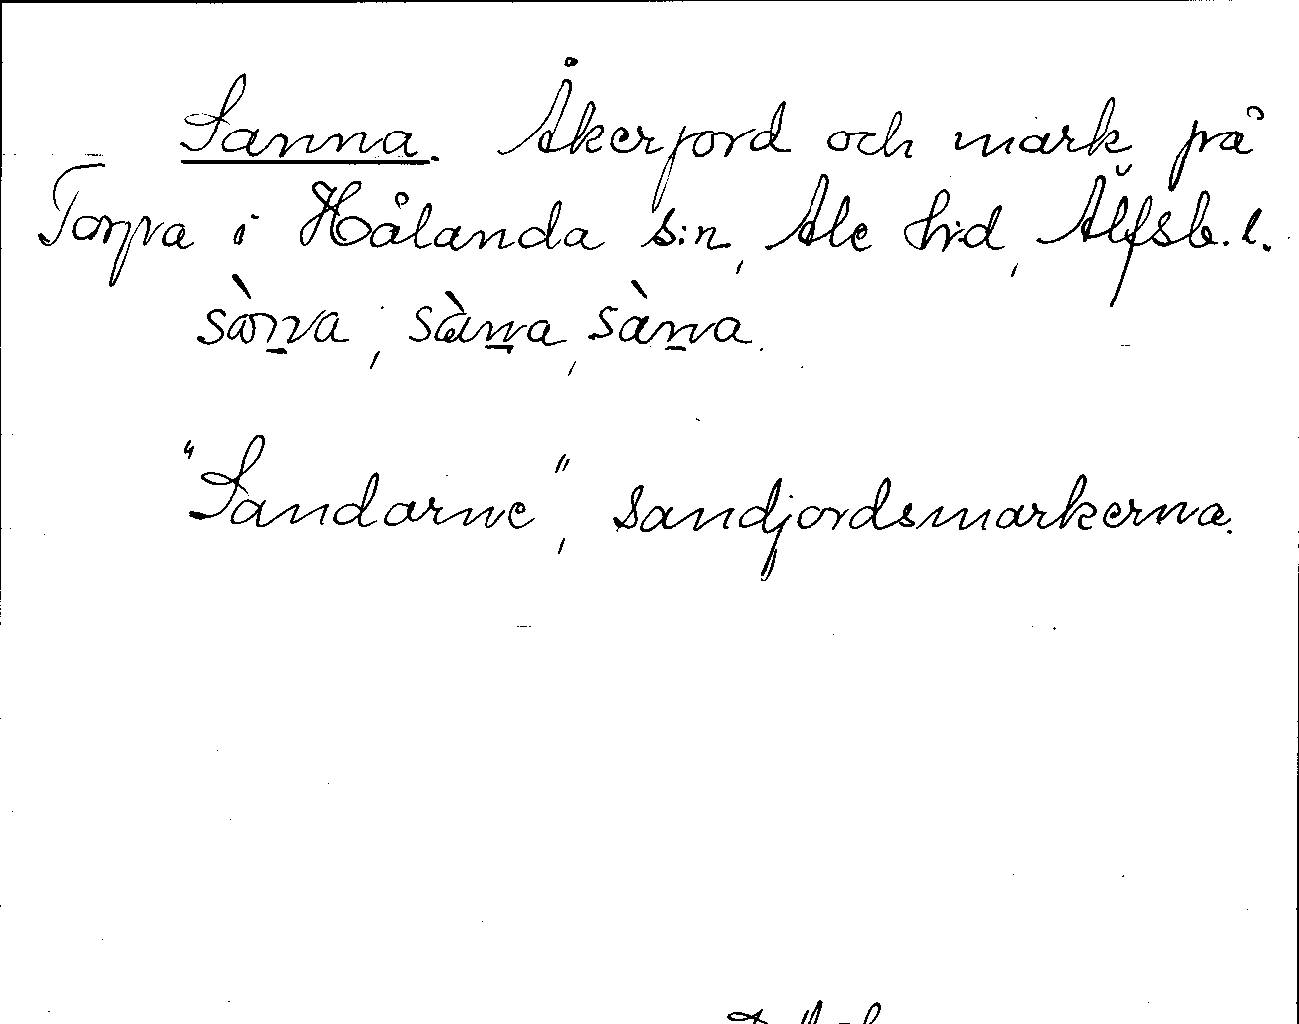 Sanna. Åkerjord och mark på
Torpa i Hålanda s:n, Ale h:d, Älfsb. l.
sàn̲a, sàn̲a, sàn̲a.
"Sandarne", sandjordsmarkerna.